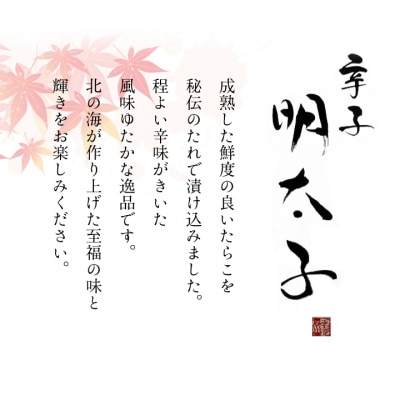 辛子
明太子
成熟した鮮度の良いたらこを
秘伝のたれで漬け込みました。
程よい辛味がきいた
風味ゆたかな逸品です。
北の海が作り上げた至福の味と
輝きをお楽しみください。